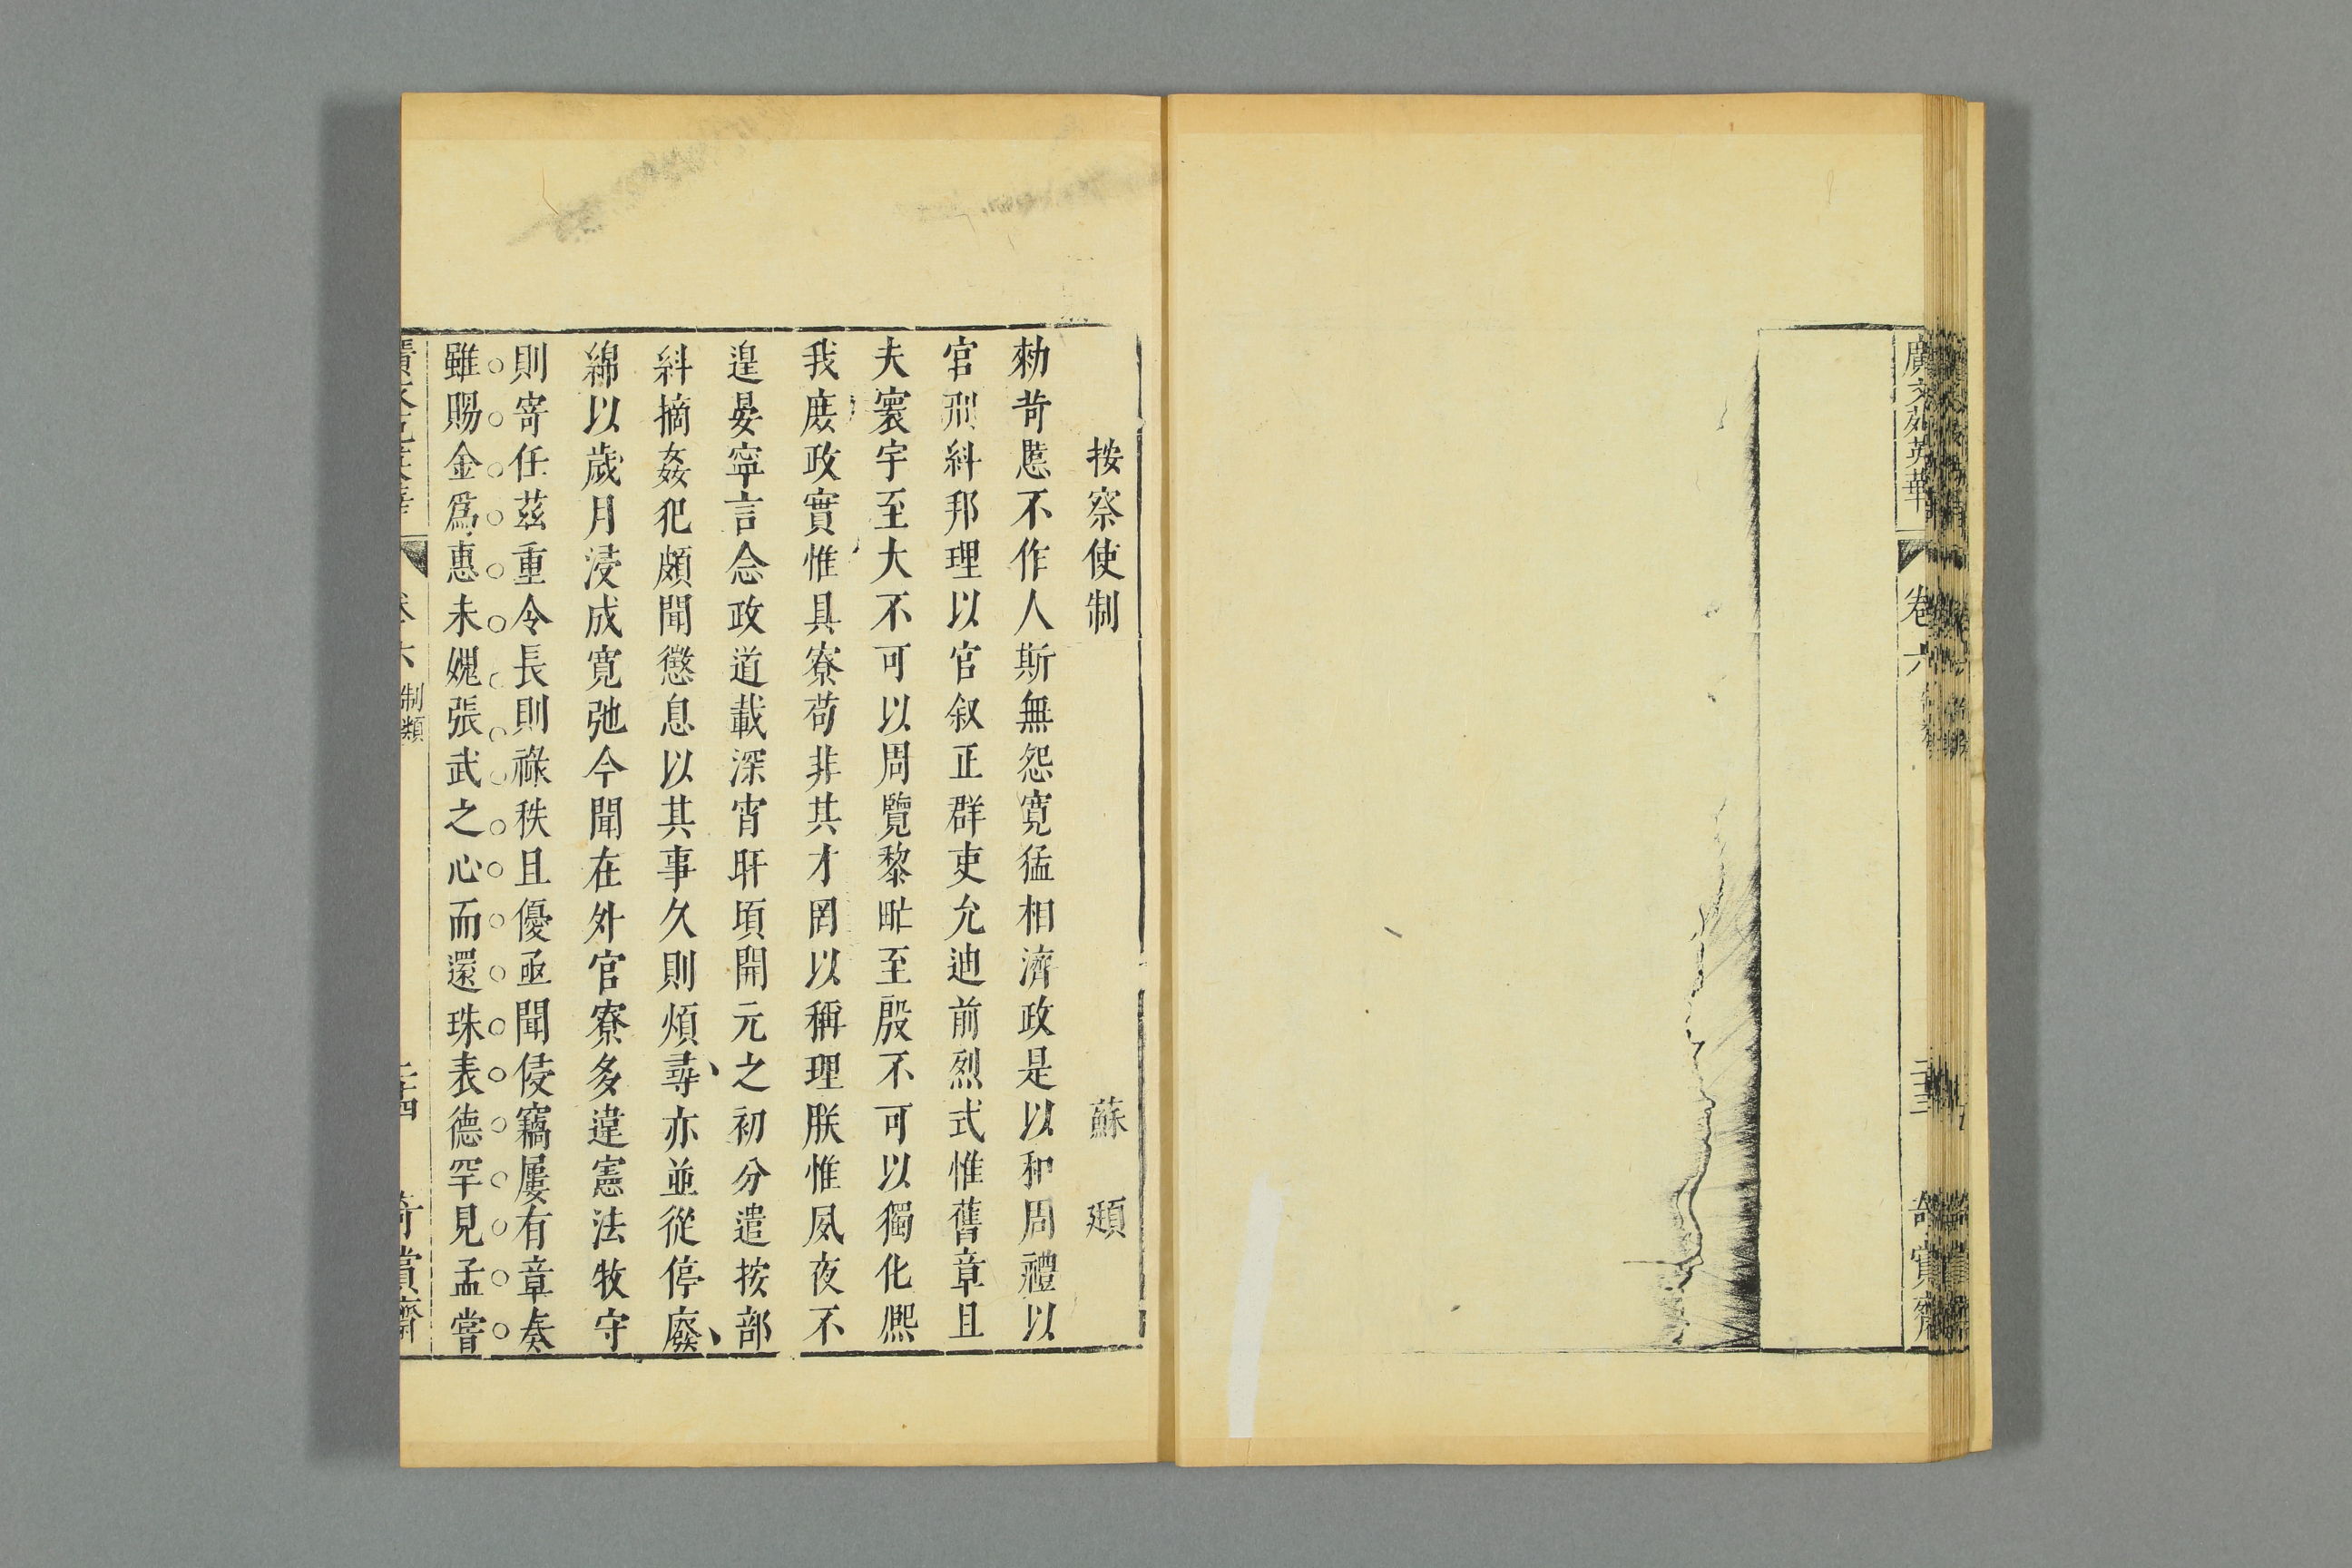 廣文苑英華 卷六 制類 二十三 奇賞齋
按察使制 蘇頲
勑苛慝不作人斯無怨寬猛相濟政是以和周禮以
官刑糾邦理以官叙正群吏允迪前烈式惟舊章且
夫寰宇至大不可以周覽黎甿至殷不可以獨化熈
我庻政實惟具寮苟非其才罔以稱理朕惟夙夜不
遑晏寜言念政道載深宵旰頃開元之初分遣按部
糾摘姦犯頗聞懲息以其事久則煩尋亦並從停廢
綿以歲月浸成寛弛今聞在外官寮多違憲法牧守
則寄任茲重令長則祿秩且優亟聞侵竊屢有章奏
雖賜金爲惠未媿張武之心而還珠表德罕見孟嘗
廣文苑英華 卷六 制類 二十四 奇賞齋